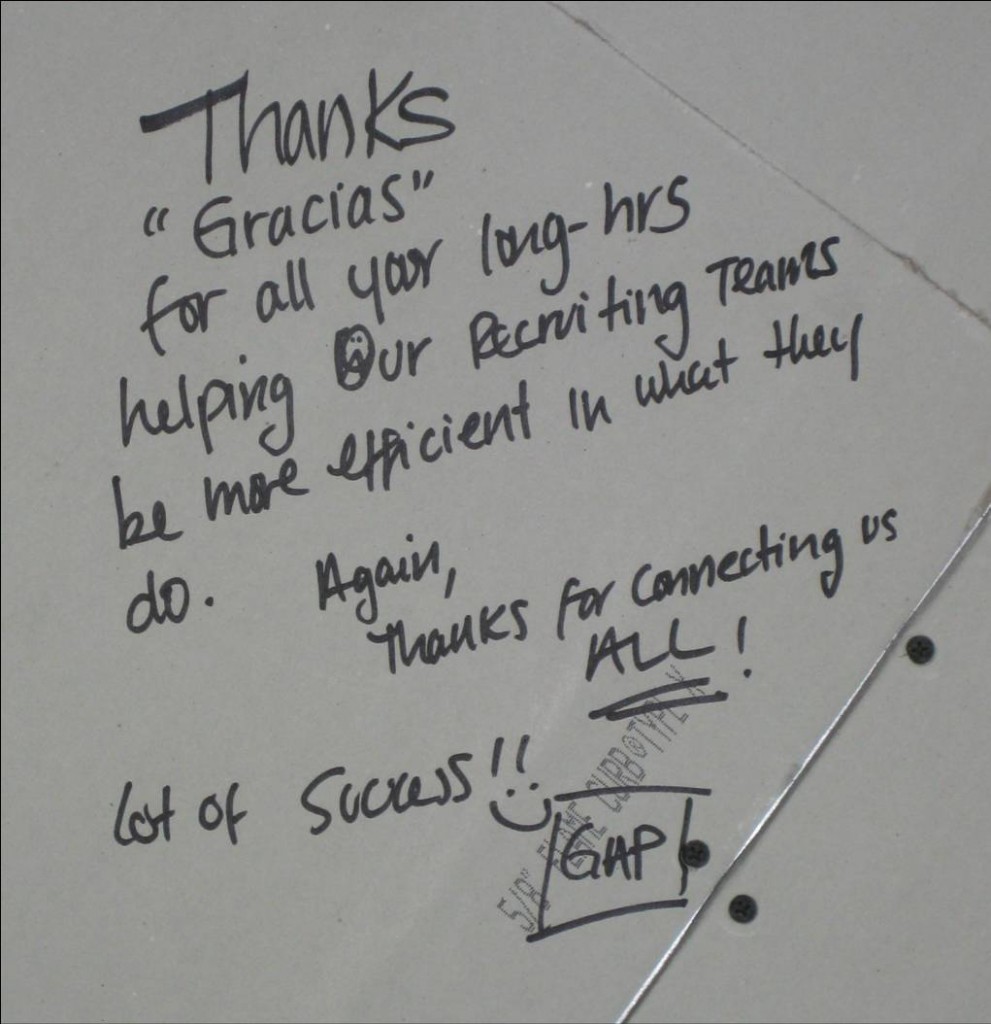 Thanks
"Gracias"
for all your long-hrs
helping Our Recruiting Teams
be more efficient in what they
do. Again,
Thanks for connecting us
ALL!
Lot of Success!!
GAP
5/8" FLAME CURB®TYPE X